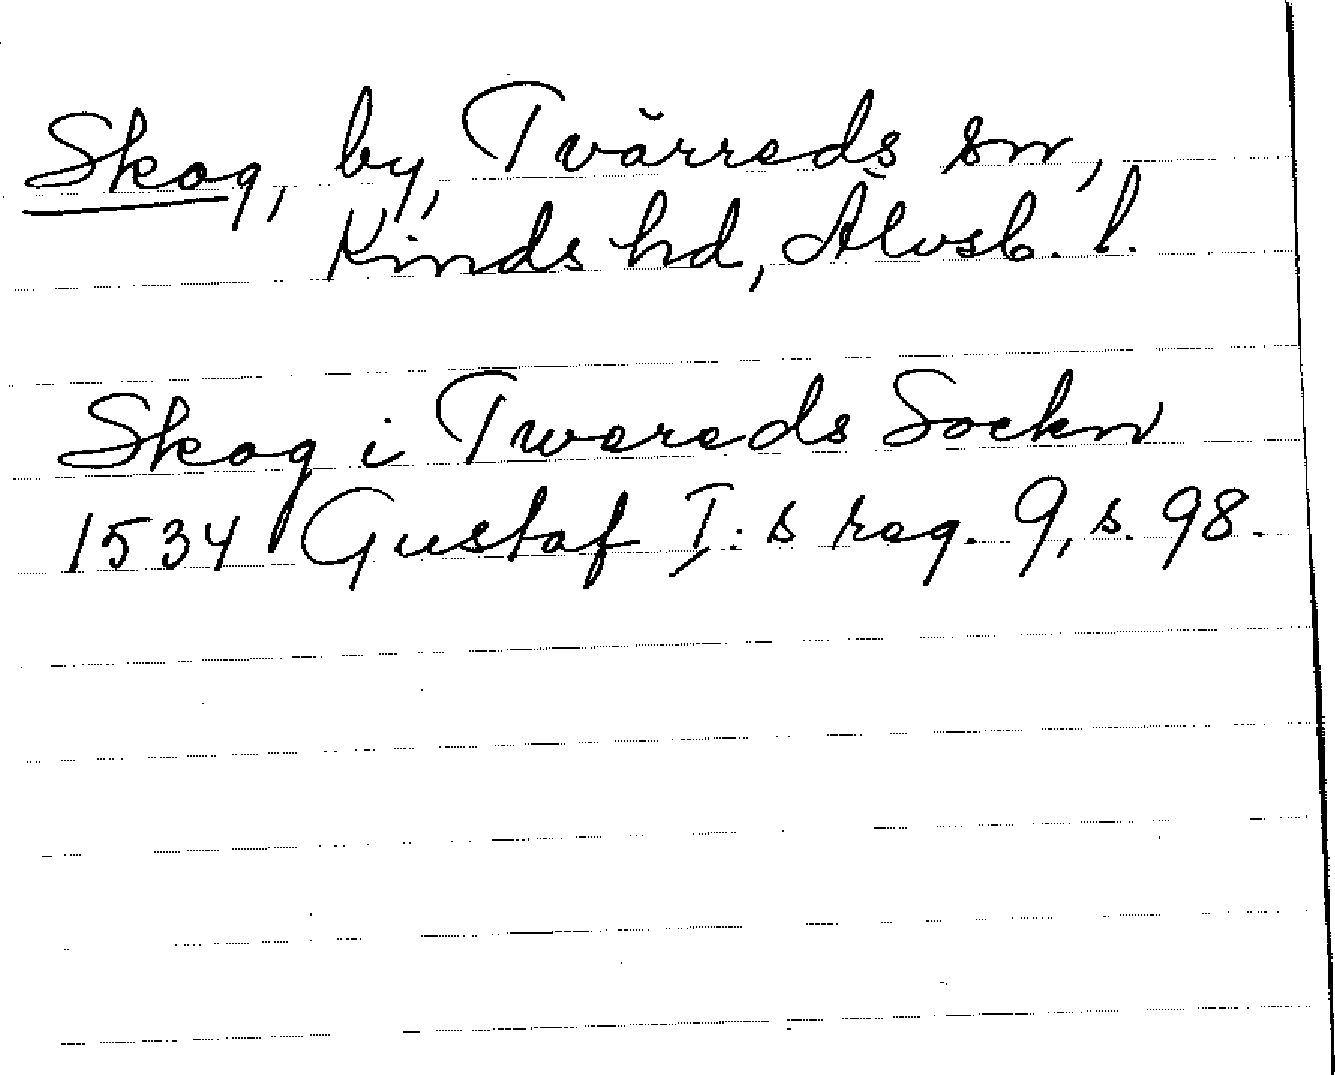 Skog, by, Tvärreds sn,
Kinds hd, Älvsb. l.
Skog i Twereds Sockn
1534 Gustaf I:s reg. 9, s. 98.